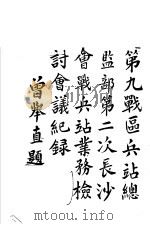 第九戰區兵站總
監部第二次長沙
會戰兵站業務檢
討會議紀錄
曾舉直題
www.youyixue.com